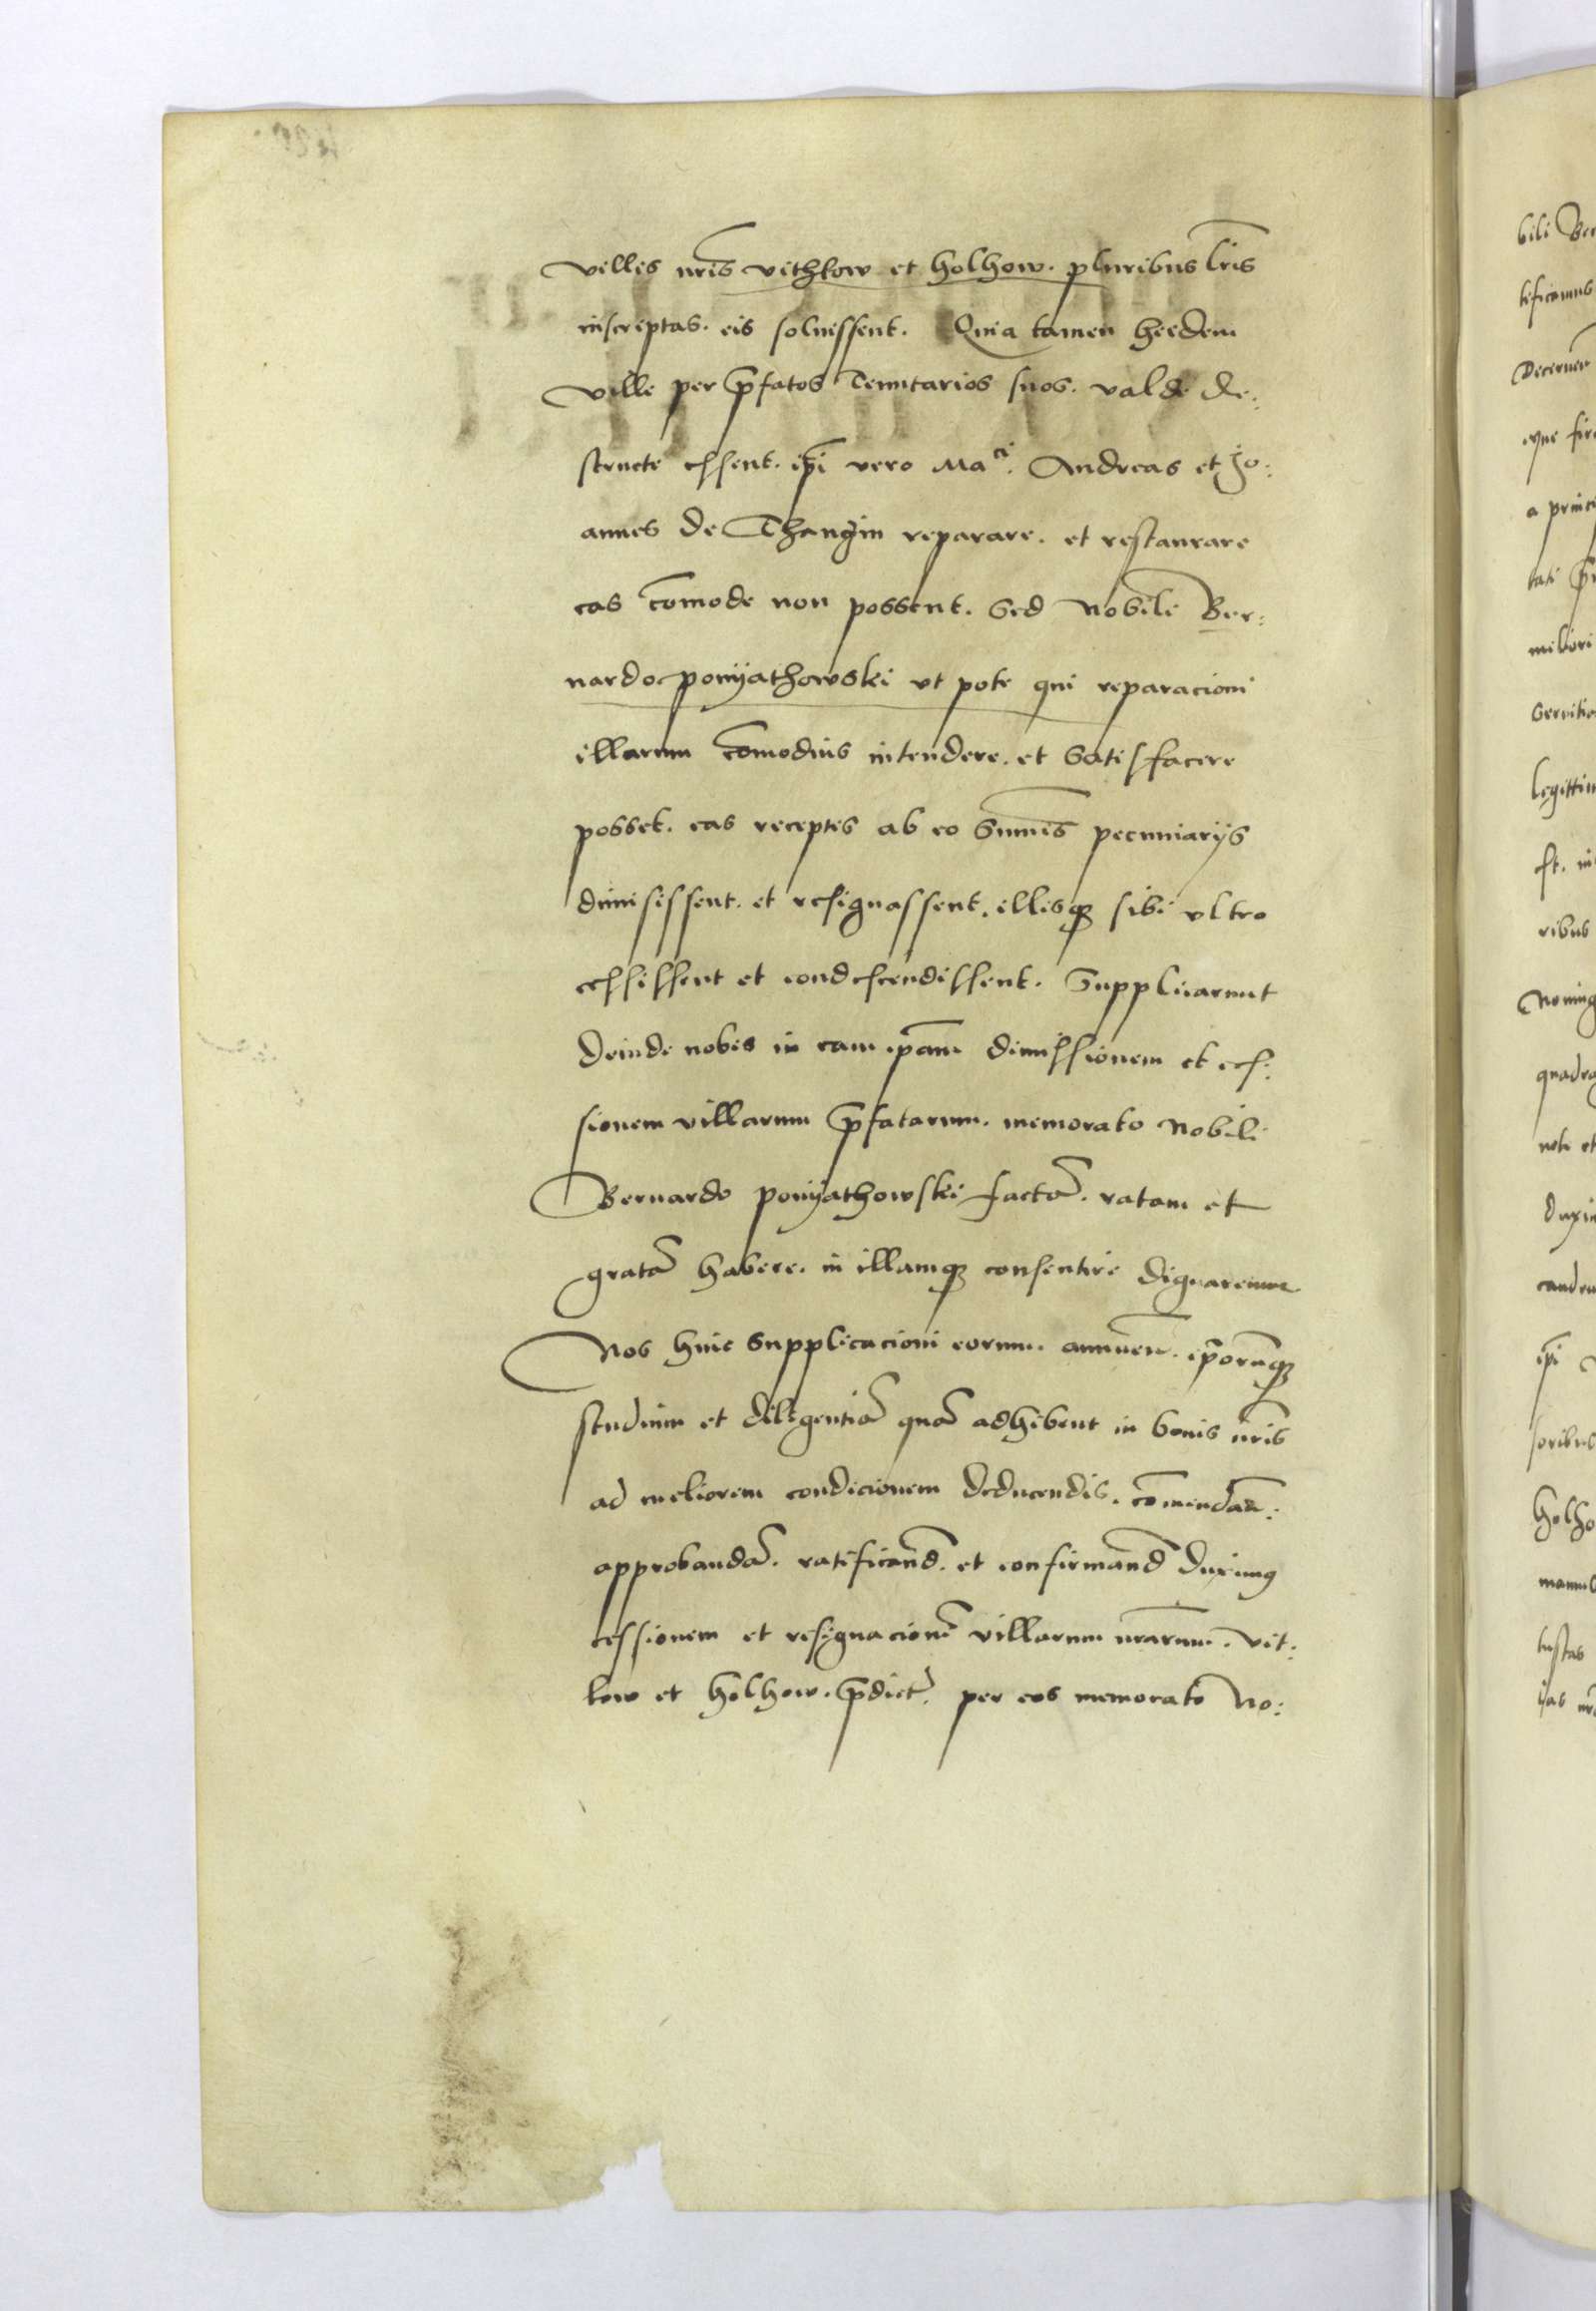 villis nr̃is vithkow et holhow. pluribus lr̃is
inscriptas. eis soluissent. Quia tamen heedem
ville per p̃fatos Tenutarios suos. valde de:
structe essent. ip̃i vero Ma^ci. Andreas et Jo:
annes de Thanczin reparare. et restaurare
eas com̃ode non possent. Sed Nobili Ber:
nardo ponyathowski vt pote qui reparacioni
illarum com̃odius intendere. et Satisfacere
posset. eas receptis ab eo Sum̃is pecuniarijs
dimisissent. et resignassent. illisqꝫ sibi vltro
cessissent et condescendissent. Supplicarunt
deinde nobis in eam ip̃am dimissionem et ces:
sionem villarum p̃fatarum. memorato Nobili
Bernardo ponyathowski factã. ratam et
gratã habere. in illamqꝫ consentire dignaremur
Nos huic Supplicacioni eorum. annueñ. ip̃orũqꝫ
studium et diligentiã quã adhibent in bonis nr̃is
ad meliorem condicionem deducendis. com̃endañ:
approbandã. ratificand̃. et confirmand̃ duximꝯ
cessionem et resignacionẽ villarum nr̃arum. vit:
kow et holhow. p̃dict̃. per eos memorato No:
bili Ber
tificamus
Decernen
a princ
meliori
Servitio
legittim
ribus
quadra
duxim
ip̃i
soribus
holho